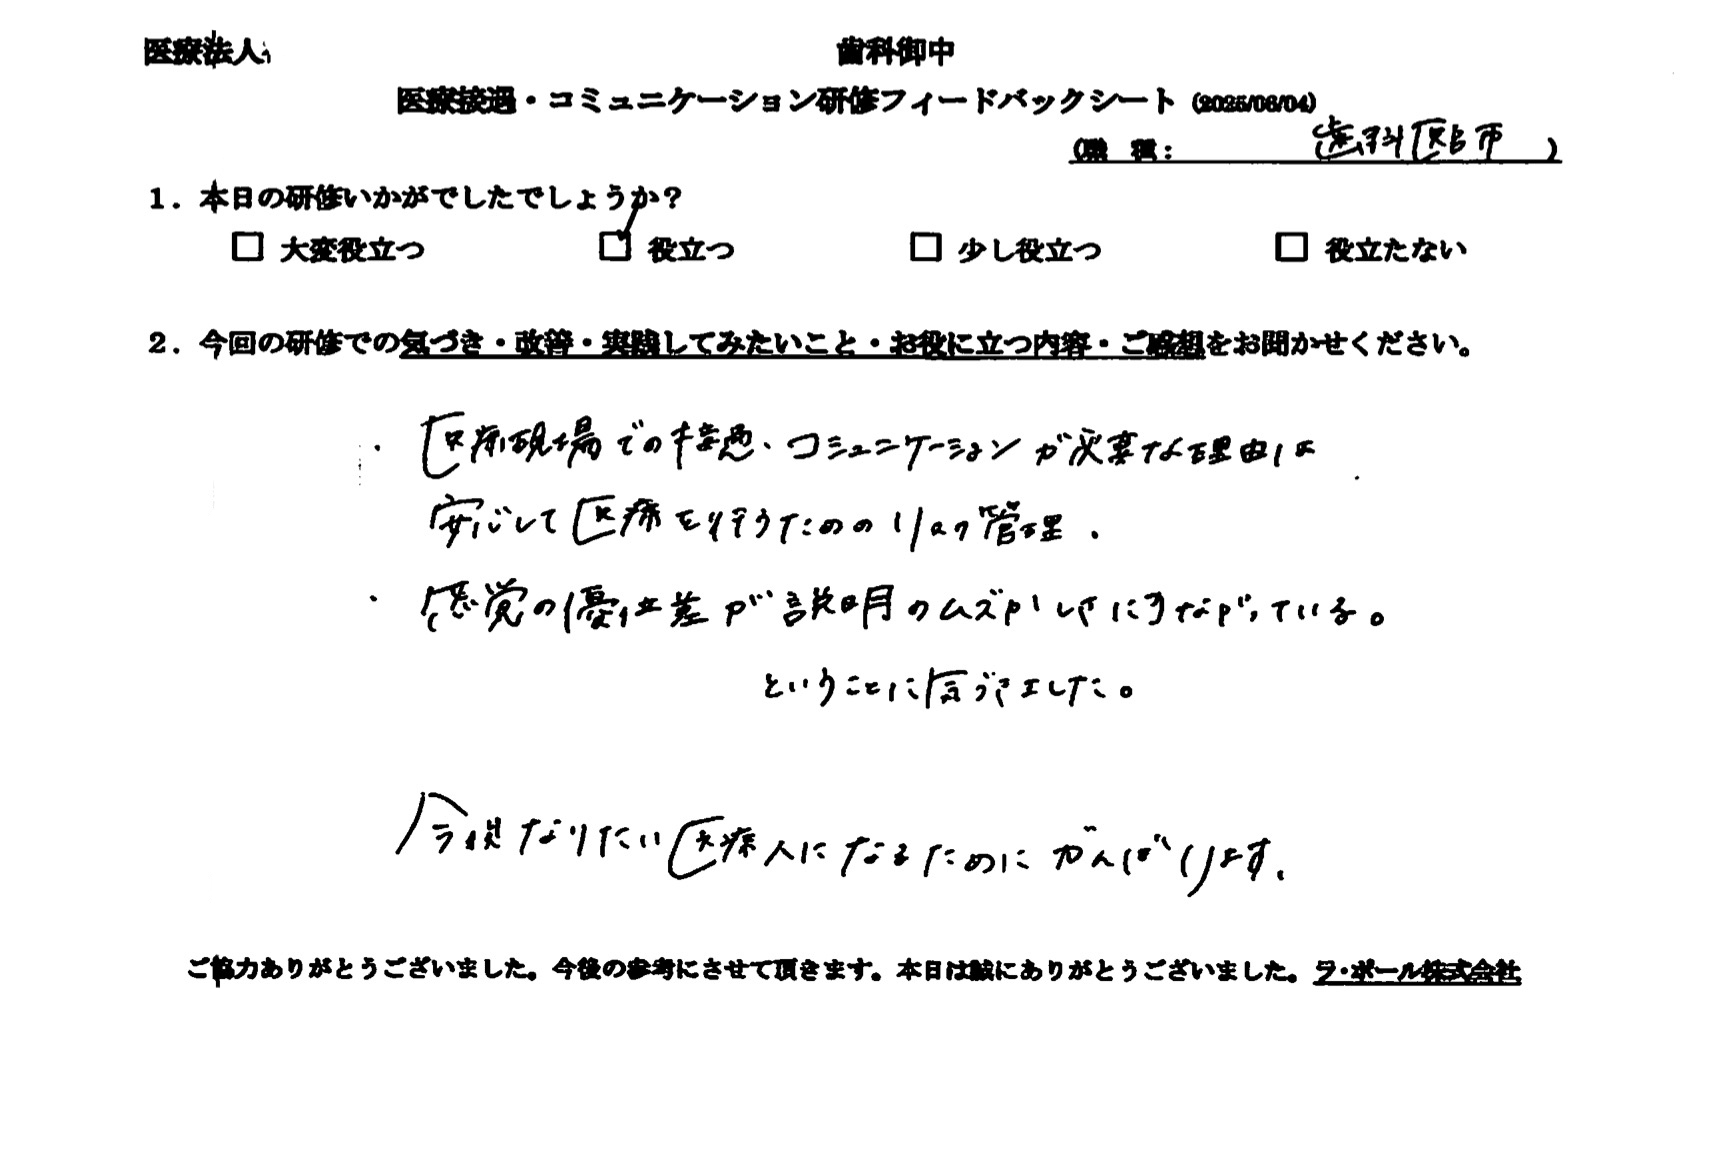 医療法人 歯科御中
医療接遇・コミュニケーション研修フィードバックシート (2025/06/04)
(職 種: 歯科医師 )
1. 本日の研修いかがでしたでしょうか?
□ 大変役立つ ☑ 役立つ □ 少し役立つ □ 役立たない
2. 今回の研修での気づき・改善・実践してみたいこと・お役に立つ内容・ご感想をお聞かせください。
・ 医療現場での接遇、コミュニケーションが必要な理由は
安心して医療を行うためのリスク管理.
・ 感覚の優位差が説明のムズかしさにつながっている。
ということに気づきました。
今後なりたい医療人になるためにがんばります.
ご協力ありがとうございました。今後の参考にさせて頂きます。本日は誠にありがとうございました。ラ・ポール株式会社